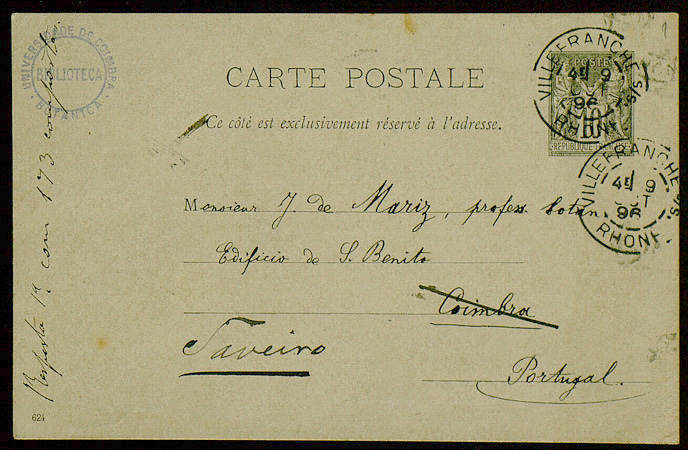 UNIVERSIDADE DE COIMBRA
BIBLIOTECA
BOTANICA
CARTE POSTALE
Ce côté est exclusivement réservé à l'adresse.
POSTE
10
RÉPUBLIQUE FRANÇAISE
VILLEFRANCHE S/S
4E 9
OCT
96
RHONE
VILLEFRANCHE S/S
4E 9
OCT
96
RHONE
Monsieur J. de Mariz, profess. botan.
Edificio de S. Benito
Coimbra
Taveiro
Portugal.
Resposta 1ª com 173 comporta
624